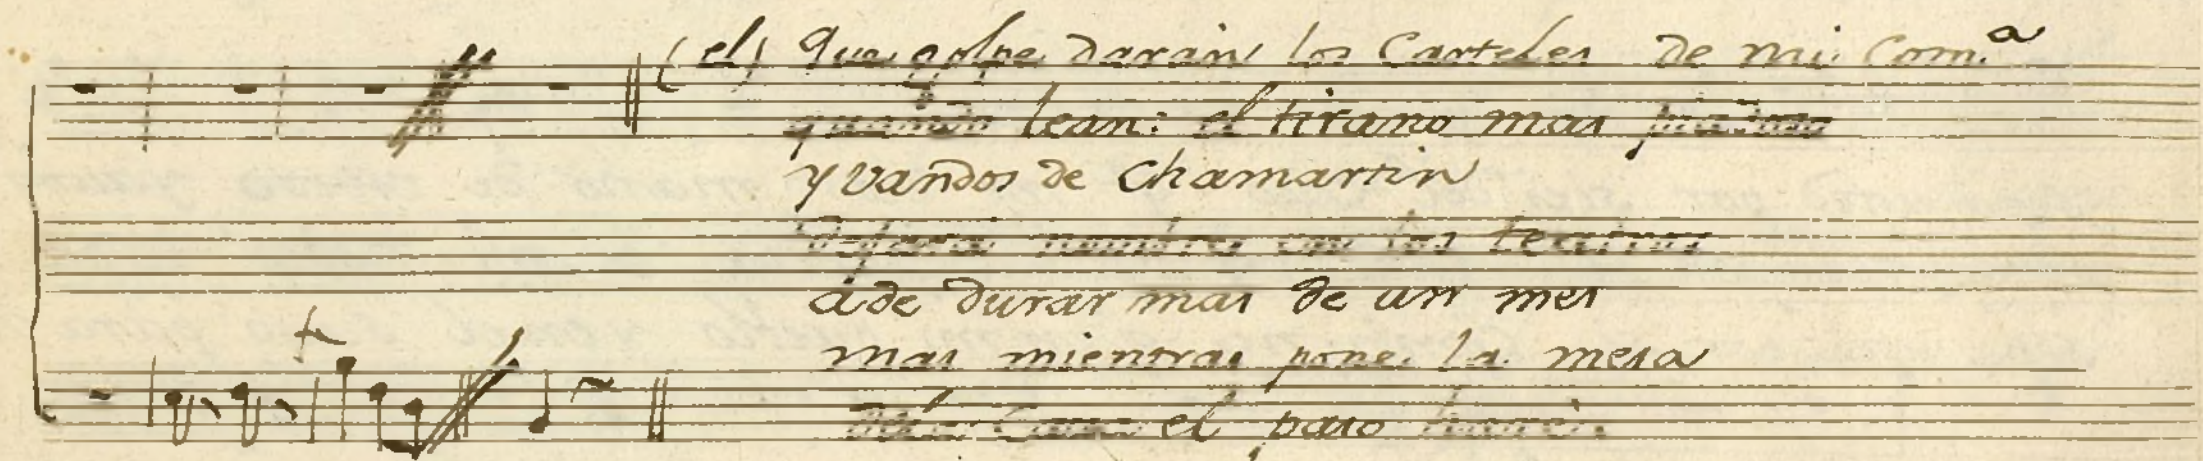 (el) Que golpe darán los Carteles de mi Com.ª
quando lean: el tirano mas
y vandos de Chamartin
nombres con los teatros
ade durar mas de un mes
mas mientras pone la mesa
el paso